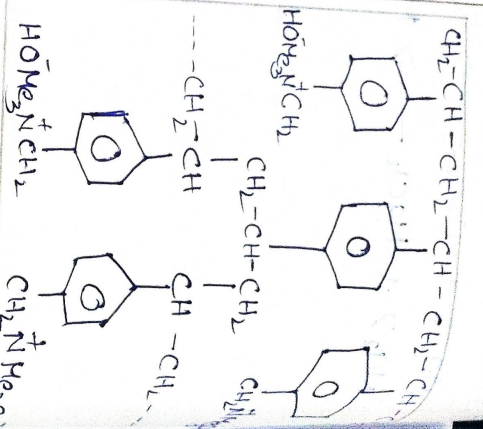 CH₂-CH-CH₂-CH-CH₂-CH-
HŌMe₃N⁺CH₂
CH₂N
CH₂-CH-CH₂
----CH₂-CH
CH-CH₂--
HŌMe₃N⁺CH₂
CH₂N⁺Me₃